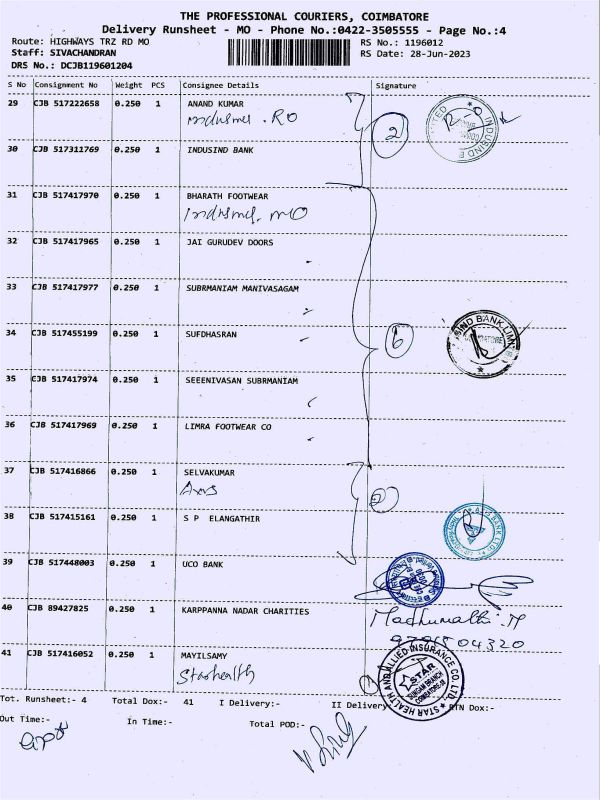 THE PROFESSIONAL COURIERS, COIMBATORE
Delivery Runsheet - MO - Phone No.:0422-3505555 - Page No.:4
Route: HIGHWAYS TRZ RD MO RS No.: 1196012
Staff: SIVACHANDRAN RS Date: 28-Jun-2023
DRS No.: DCJB119601204
S No Consignment No Weight PCS Consignee Details Signature
29 CJB 517222658 0.250 1 ANAND KUMAR
RO 2
30 CJB 517311769 0.250 1 INDUSIND BANK
31 CJB 517417970 0.250 1 BHARATH FOOTWEAR
MO
32 CJB 517417965 0.250 1 JAI GURUDEV DOORS
33 CJB 517417977 0.250 1 SUBRMANIAM MANIVASAGAM
34 CJB 517455199 0.250 1 SUFDHASRAN 6
SIND BANK LIM
35 CJB 517417974 0.250 1 SEEENIVASAN SUBRMANIAM
36 CJB 517417969 0.250 1 LIMRA FOOTWEAR CO
37 CJB 517416866 0.250 1 SELVAKUMAR
Axis
38 CJB 517415161 0.250 1 S P ELANGATHIR
39 CJB 517448003 0.250 1 UCO BANK
40 CJB 89427825 0.250 1 KARPPANNA NADAR CHARITIES
Madhumathi.M
41 CJB 517416052 0.250 1 MAYILSAMY
Starhealth
STAR HEALTH AND ALLIED INSURANCE CO.LTD.
STAR
Tot. Runsheet:- 4 Total Dox:- 41 I Delivery:- II Delivery RTN Dox:-
Out Time:- In Time:- Total POD:-